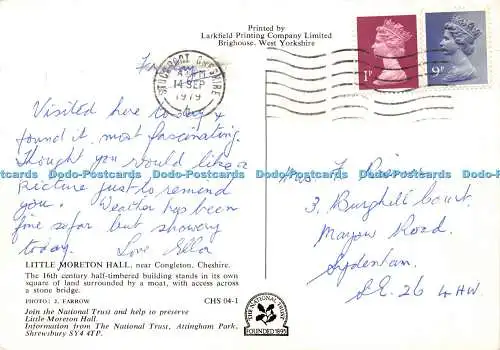 Printed by
Larkfield Printing Company Limited
Brighouse, West Yorkshire
STOCKPORT CHESHIRE
14 SEP
1979
1P
9P
Friday
Visited here today &
found it most fascinating.
Thought you would like a
picture just to remind
you. Weather has been
fine so far but showery
today. Love Ella
Mrs. F.
3, Burghill Court.
Mayow Road.
Sydenham.
S.E. 26 4HW
Dodo-Postcards Dodo-Postcards Dodo-Postcards Dodo-Postcards Dodo-Postcards
LITTLE MORETON HALL, near Congleton, Cheshire.
The 16th century half-timbered building stands in its own
square of land surrounded by a moat, with access across
a stone bridge.
PHOTO: J. FARROW
CHS 04-1
Join the National Trust and help to preserve
Little Moreton Hall.
Information from The National Trust, Attingham Park,
Shrewsbury SY4 4TP.
THE NATIONAL TRUST
FOUNDED 1895